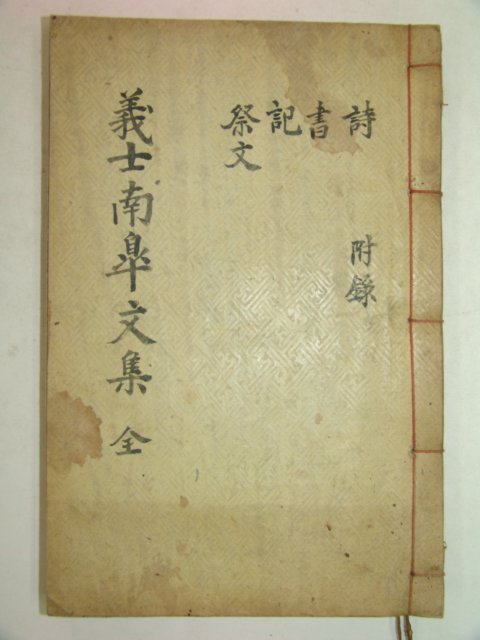 詩
書
記
祭文
附錄
義士南皐文集 全